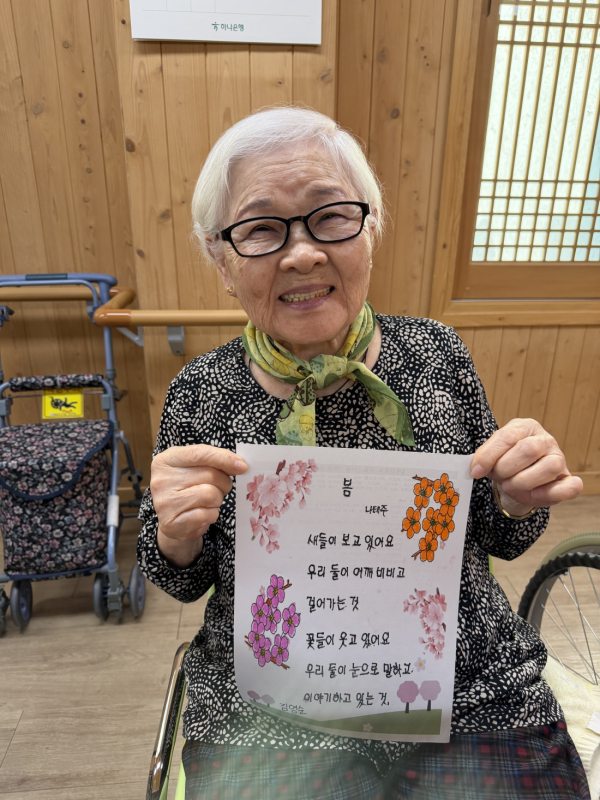 하나은행
봄
나태주
새들이 보고 있어요
우리 둘이 어깨 비비고
걸어가는 것
꽃들이 웃고 있어요
우리 둘이 눈으로 말하고
이야기하고 있는 것,